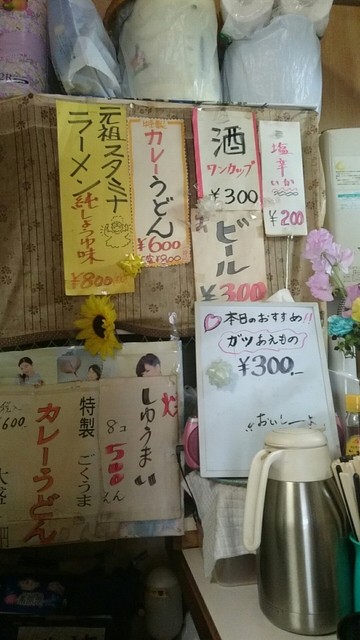 元祖スタミナ
ラーメン
純しょうゆ味
¥800
特製
カレーうどん
¥600
酒
ワンカップ
¥300
塩辛
いか
¥200
ビール
¥300
本日のおすすめ!!
ガツあえもの
¥300.-
おいしーよ
しゅうまい
8コ
特製
ごくうま
カレーうどん
600
大盛